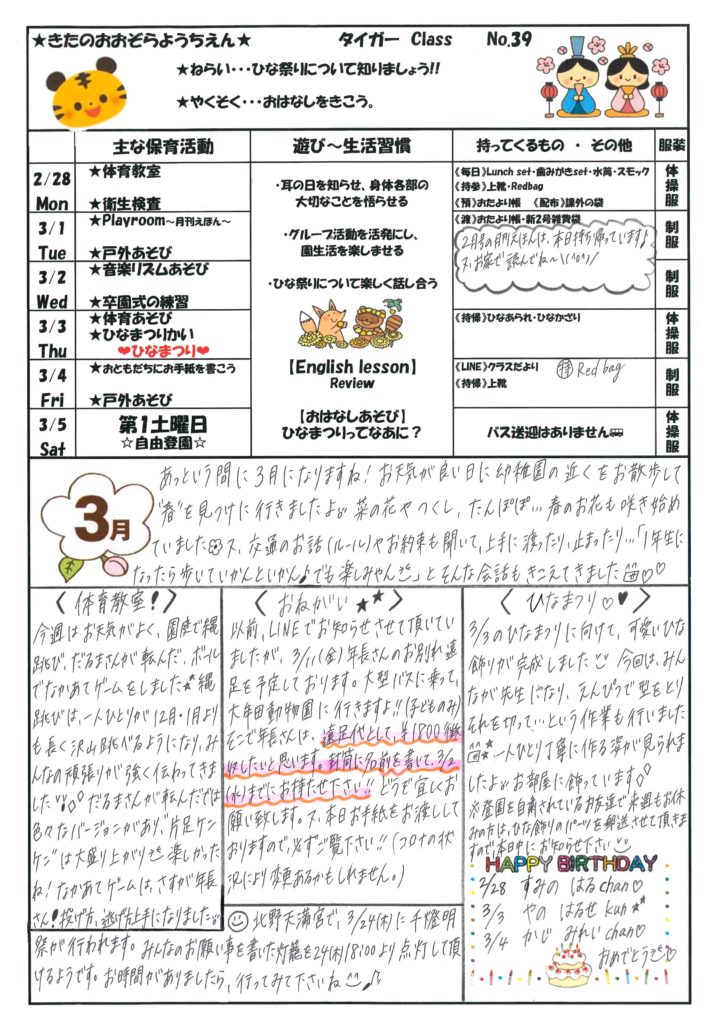 ★きたのおおぞらようちえん★ タイガー Class No.39
★ねらい・・・ひな祭りについて知りましょう!!
★やくそく・・・おはなしをきこう。
主な保育活動 遊び～生活習慣 持ってくるもの ・ その他 服装
2/28 Mon
★体育教室
★衛生検査
3/1 Tue
★Playroom～月刊えほん～
★戸外あそび
3/2 Wed
★音楽リズムあそび
★卒園式の練習
3/3 Thu
★体育あそび
★ひなまつりかい
❤ひなまつり❤
3/4 Fri
★おともだちにお手紙を書こう
★戸外あそび
3/5 Sat
第1土曜日
☆自由登園☆
・耳の日を知らせ、身体各部の
大切なことを悟らせる
・グループ活動を活発にし、
園生活を楽しませる
・ひな祭りについて楽しく話し合う
【English lesson】
Review
【おはなしあそび】
ひなまつりってなあに？
《毎日》Lunch set・歯みがきset・水筒・スモック
《持参》上靴・Redbag
《預》おたより帳 《配布》課外の袋
《渡》おたより帳・新2号雑費袋
2月号の月刊えほんは、本日持ち帰っています♪
又、お家で読んでね～\(^o^)/
《持帰》ひなあられ・ひなかざり
《LINE》クラスだより
《持帰》上靴
持 Red bag
バス送迎はありません
体操服
制服
制服
体操服
制服
体操服
3月
あっという間に3月になりますね！お天気が良い日に幼稚園の近くをお散歩して
"春"を見つけに行きましたよ 菜の花やつくし、たんぽぽ…春のお花も咲き始め
ていました 又、交通のお話(ルール)やお約束も聞いて、上手に渡ったり、止まったり…「1年生に
なったら歩いていかんといかん♪でも楽しみやん」とそんな会話もきこえてきました♡♡
〈体育教室！〉
今週はお天気がよく、園庭で縄
跳び、だるまさんが転んだ、ボール
でなかあてゲームをしました 縄
跳びは、一人ひとりが12月・1月より
も長く沢山跳べるようになり、み
んなの頑張りが強く伝わってきま
した!! だるまさんが転んだでは
色々なバージョンがあり、"片足ケン
ケン"は大盛り上がり 楽しかった
ね！なかあてゲームは、さすが年長
さん！投げ方、逃げ方上手になりました
〈おねがい★★〉
以前、LINEでお知らせさせて頂いてい
ましたが、3/11(金)年長さんのお別れ遠
足を予定しております。大型バスに乗って、
大牟田動物園に行きますよ!!(子どものみ)
そこで年長さんは、遠足代として、¥1800徴
収したいと思います。封筒に名前を書いて、3/2
(水)までにお持たせ下さい!!どうぞ宜しくお
願い致します。又、本日お手紙をお渡しして
おりますので、必ずご覧下さい!!(コロナの状
況により変更あるかもしれません。)
〈ひなまつり♡♥〉
3/3のひなまつりに向けて、可愛いひな
飾りが完成しました 今回は、みん
なが先生になり、えんぴつで型をとり
それを切って…という作業も行いました
一人ひとり丁寧に作る姿が見られま
したよ お部屋に飾っています
※登園を自粛されているお友達で来週もお休
みの方は、ひな飾りのパーツを郵送させて頂きま
すので本日中にお知らせ下さい
HAPPY BIRTHDAY
2/28 すみの はるchan♡
3/3 やの はるせ kun
3/4 かじ みれい chan♡
おめでとう♡
北野天満宮で、3/24(木)に千燈明
祭が行われます。みんなのお願い事を書いた灯籠を24(木)18:00より点灯して頂
けるようです。お時間がありましたら、行ってみて下さいね♪